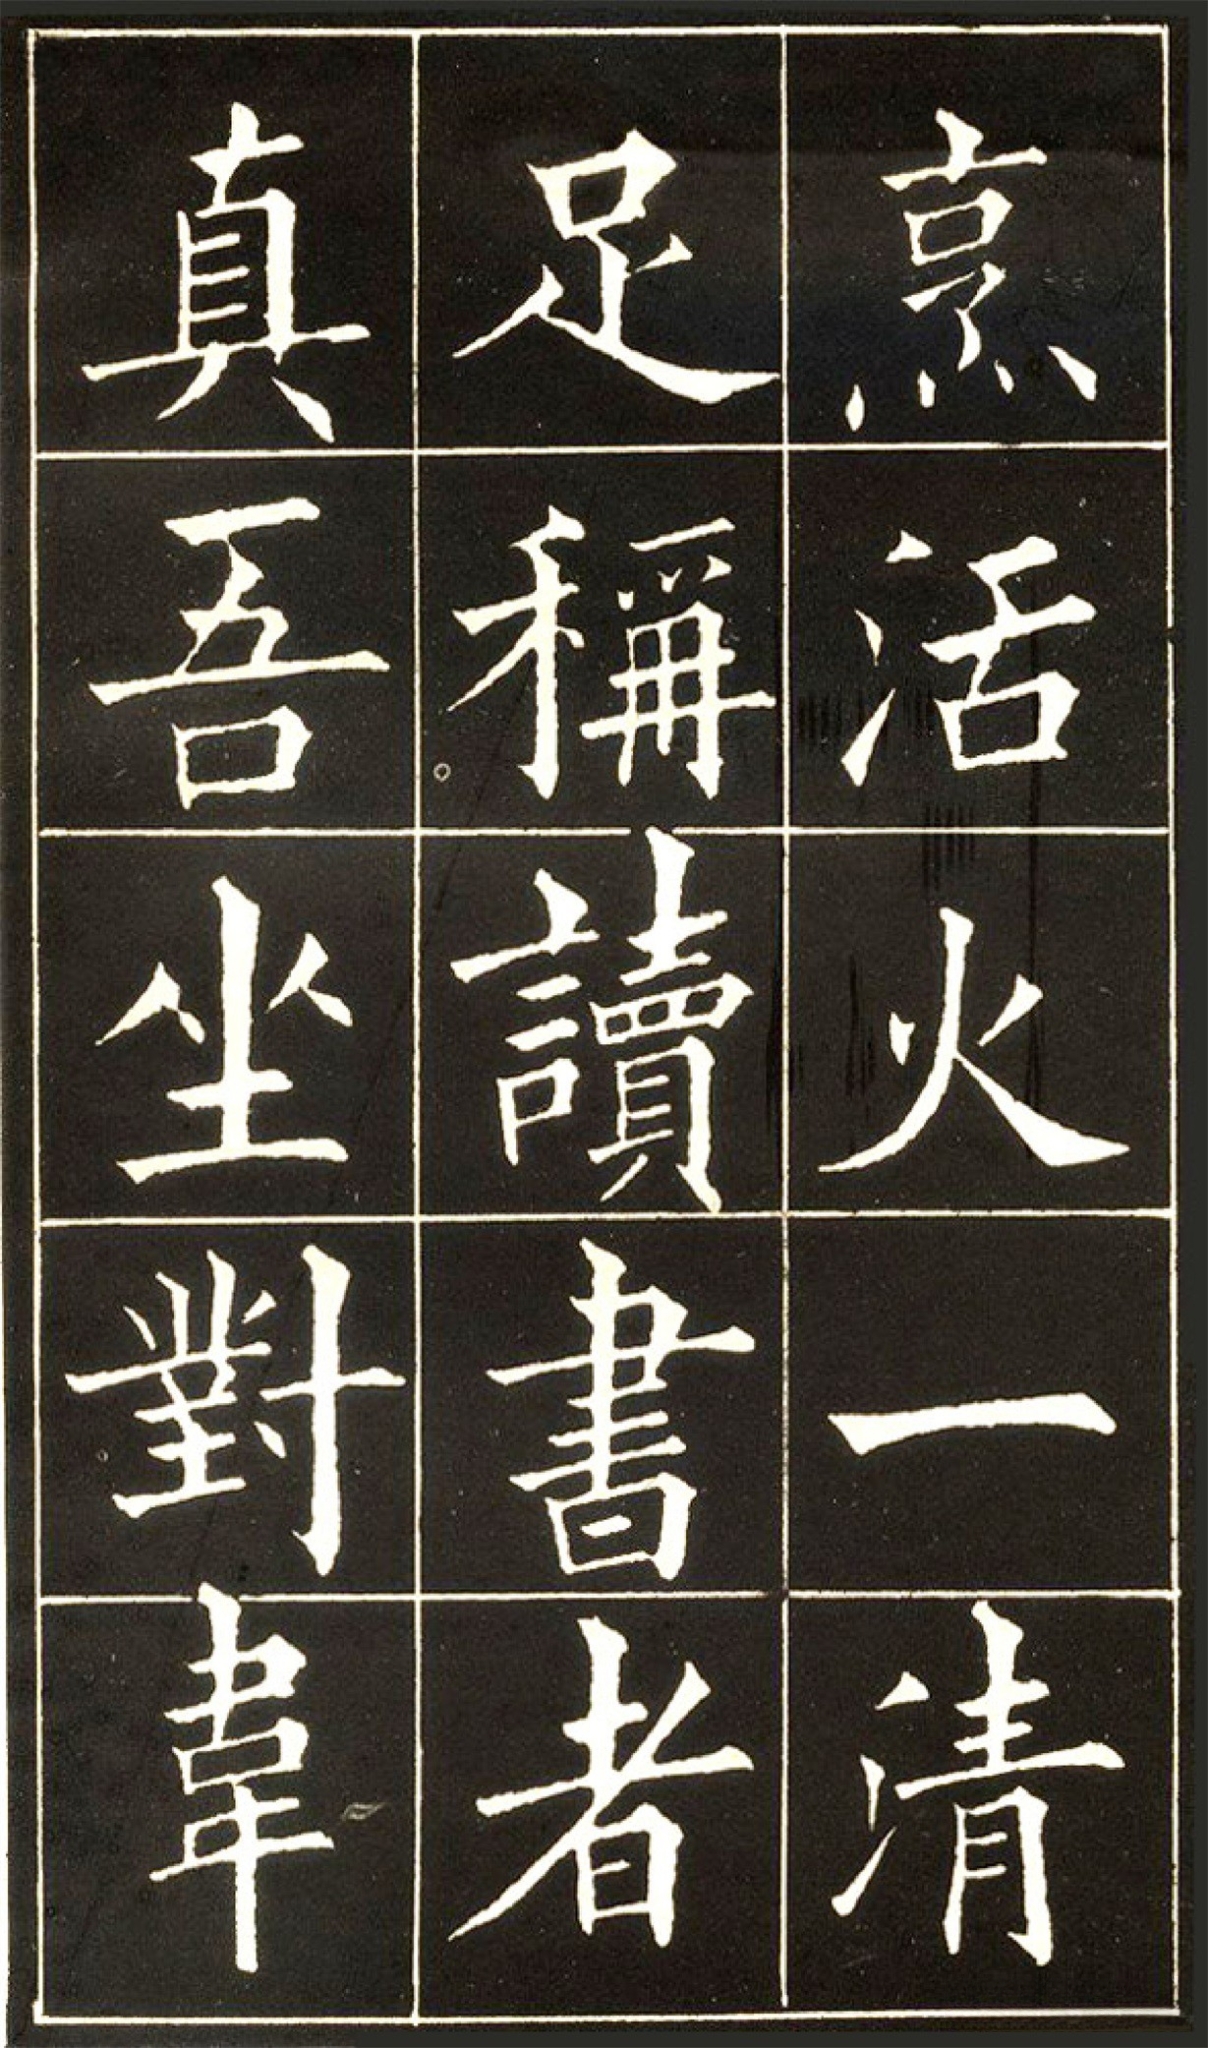 烹活火一清
足稱讀書者
真吾坐對韋